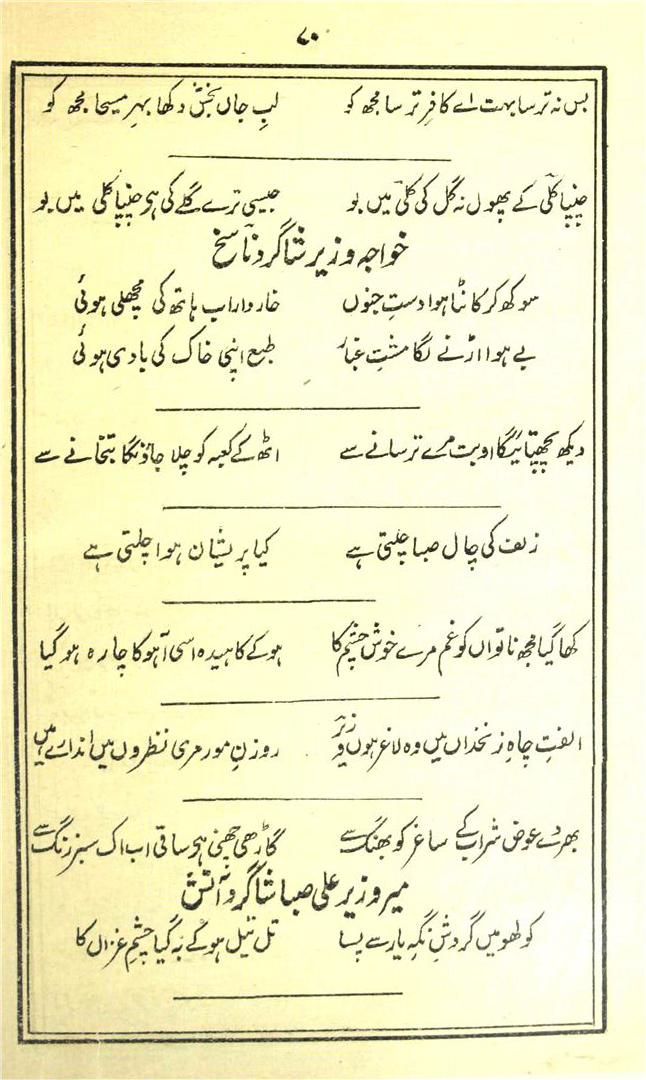 ۸۰
بس نہ ترسا بہت اے کافر ترسا مجھ کو لبِ جاں بخش دکھا بہر مسیحا مجھ کو
چنپا کلی کے پھول نہ گل کی کلی میں بو جیسی ترے گلے کی ہو چنپا کلی میں بو
خواجہ وزیر شاگرد ناسخ
سوکھ کر کانٹا ہوا دستِ جنوں خاردار اب ہاتھ کی مچھلی ہوئی
بے ہوا اڑنے لگا مشتِ غبار طبع اپنی خاک کی بادی ہوئی
دیکھ پچھتائیگا او بت مرے ترسانے سے اٹھ کے کعبہ کو چلا جاؤنگا بتخانے سے
زلف کی چال صبا چلتی ہے کیا پریشان ہوا چلتی ہے
کھا گیا مجھ ناتواں کو غم مرے خوش چشم کا ہوکے کاہیدہ اسی آہو کا چارہ ہو گیا
الفتِ چاہِ زنخداں میں وہ لاغر ہوں وزیر روزنِ مور مری نظروں میں اندارے ہیں
بھر دے عوض شراب کے ساغر کو بھنگ سے گاڑھی چھنی ہو ساقی اب اک سبز رنگ سے
میر وزیر علی صبا شاگرد آتش
کولھو میں گردشِ نگہِ یار سے پسا تل تیل ہوکے بہ گیا چشمِ غزال کا